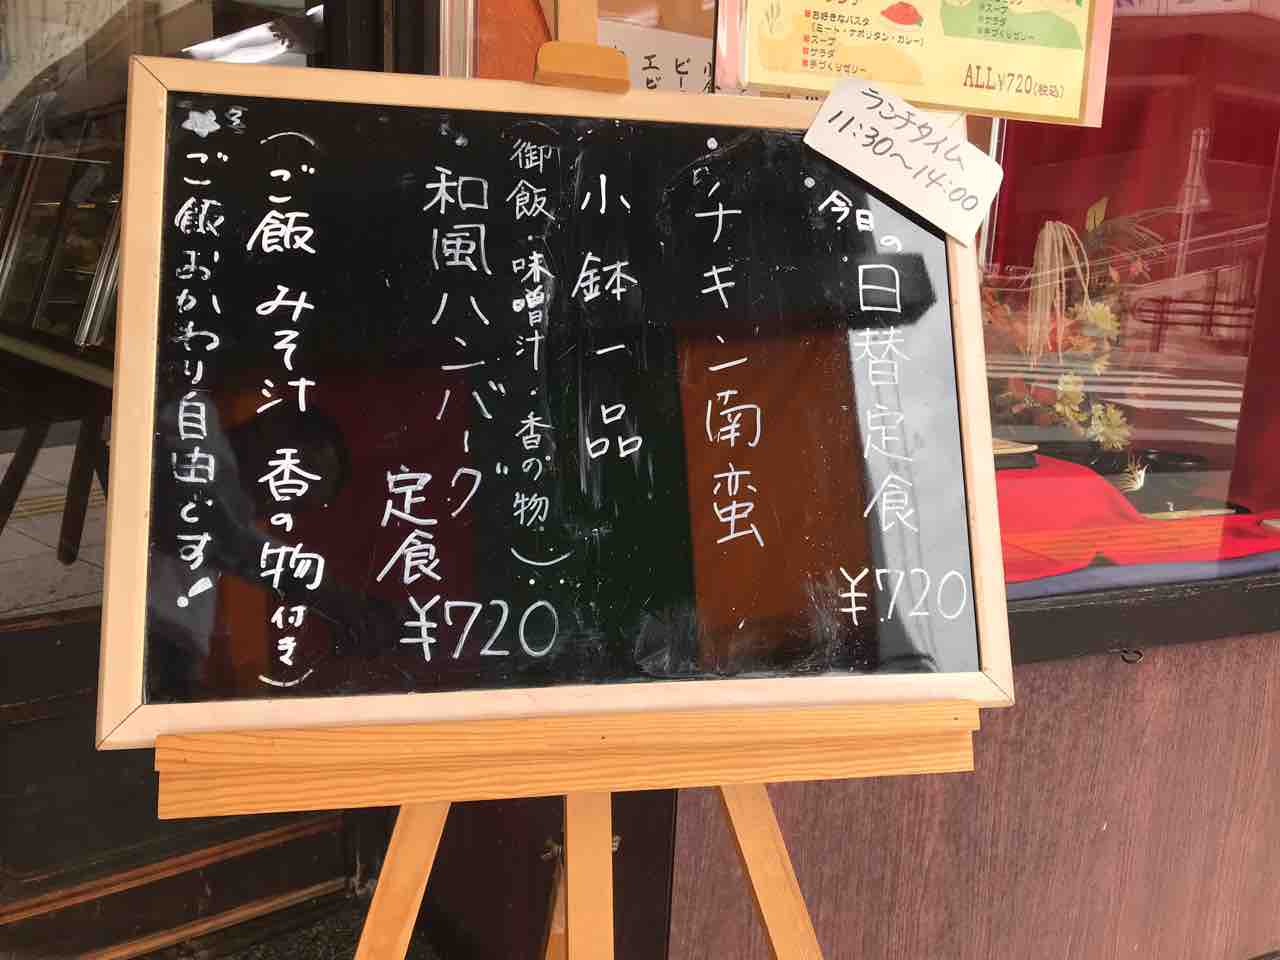 ・今日の日替定食
¥720
・チキン南蛮
小鉢一品
(御飯・味噌汁・香の物)
・和風ハンバーグ
定食
¥720
(ご飯 みそ汁 香の物付き)
★ご飯おかわり自由です!
ランチタイム
11:30〜14:00
お好きなパスタ
(ミート・ナポリタン・カレー)
スープ
サラダ
手づくりゼリー
ALL¥720(税込)
スープ
サラダ
手づくりゼリー